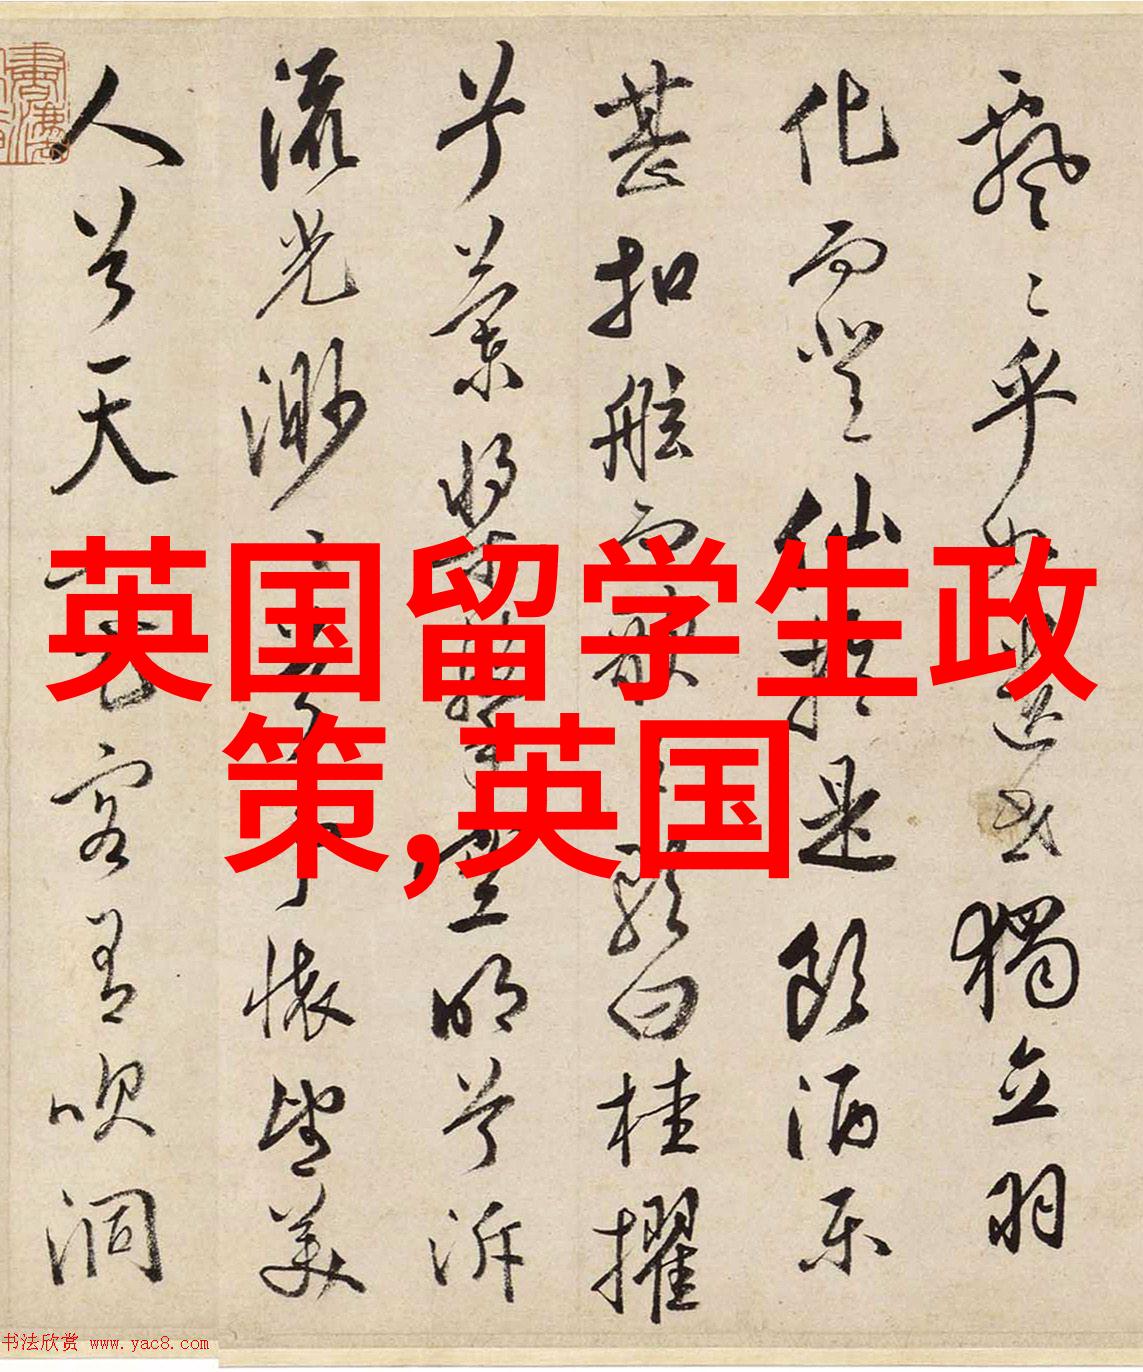 飄〻乎如遺世獨立羽
化而登仙於是飲酒樂
甚扣舷而歌之歌曰桂櫂
兮蘭槳擊空明兮泝
流光渺〻兮予懷望美
人兮天一方客有吹洞
英国留学生政
策,英国
书法欣赏 www.yac8.com